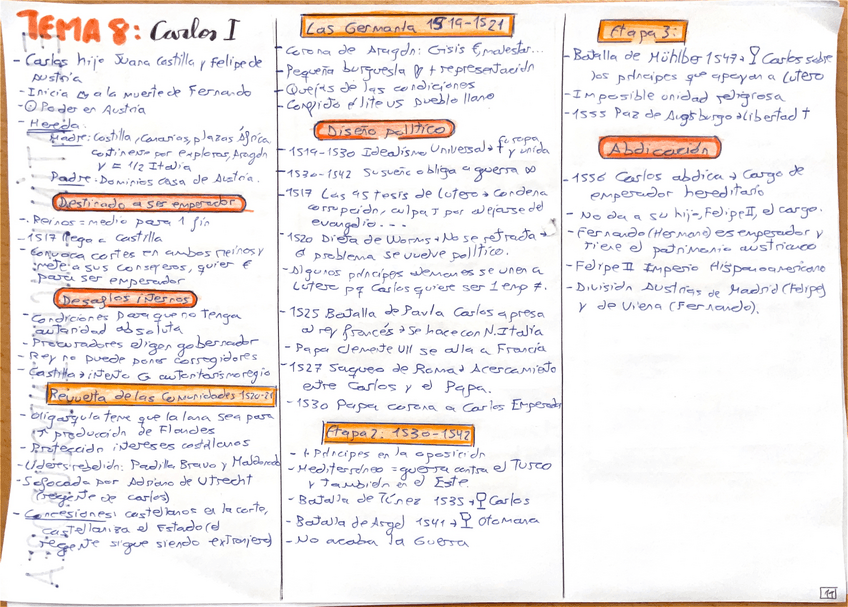 TEMA 8: Carlos I
- Carlos hijo Juana Castilla y Felipe de
Austria
- Inicia a la muerte de Fernando
Poder en Austria
- Hereda:
Madre: Castilla, Canarias, plazas África
continente por explorar, Aragón
y = 1/2 Italia
Padre: Dominios casa de Austria.
Destinado a ser emperador
- Reinos = medio para 1 fin
- 1517 llega a Castilla
- Convoca cortes en ambos reinos y
mete a sus consejeros, quier €
para ser emperador
Desafíos internos
- Condiciones para que no tenga
autoridad absoluta
- Procuradores eligen gobernador
- Rey no puede poner corregidores
- Castilla → intento autoritarismo regio
Revuelta de las Comunidades 1520-21
- Oligarquía teme que la lana sea para
↑ producción de Flandes
- Protección intereses castellanos
- Líderes rebelión: Padilla Bravo y Maldonado
- Sofocada por Adriano de Utrecht
(regente de Carlos)
- Concesiones: castellanos en la corte,
castellaniza el Estado (el
regente sigue siendo extranjero)
Las Germanía 1519-1521
- Corona de Aragón: Crisis €, malestar...
- Pequeña burguesía + representación
- Quejas de las condiciones
- Conflicto élite vs pueblo llano
Diseño político
- 1519-1530 Idealismo Universal → Europa
† y unida
- 1530-1542 Su sueño obliga a guerra ∞
- 1517 Las 95 tesis de Lutero → Condena
corrupción, culpa † por alejarse del
evangelio...
- 1520 Dieta de Worms → No se retracta →
el problema se vuelve político.
- Algunos príncipes alemanes se unen a
Lutero pq Carlos quiere ser 1 emp ≠.
- 1525 Batalla de Pavía Carlos apresa
al rey francés → se hace con N. Italia
- Papa Clemente VII se alía a Francia
- 1527 Saqueo de Roma → Acercamiento
entre Carlos y el Papa.
- 1530 Papa corona a Carlos Emperador
Etapa 2: 1530-1542
- + Príncipes en la oposición
- Mediterráneo = guerra contra el Turco
y también en el Este.
- Batalla de Túnez 1535 → Carlos
- Batalla de Argel 1541 → Otomana
- No acaba la Guerra
Etapa 3:
- Batalla de Mühlber 1547 → Carlos sobre
los príncipes que apoyan a Lutero
- Imposible unidad religiosa
- 1555 Paz de Augsburgo → libertad †
Abdicación
- 1556 Carlos abdica → Cargo de
emperador hereditario
- No da a su hijo, Felipe II, el cargo.
- Fernando (Hermano) es emperador y
tiene el patrimonio austriaco
- Felipe II Imperio Hispanoamericano
- División Austrias de Madrid (Felipe)
y de Viena (Fernando).
11